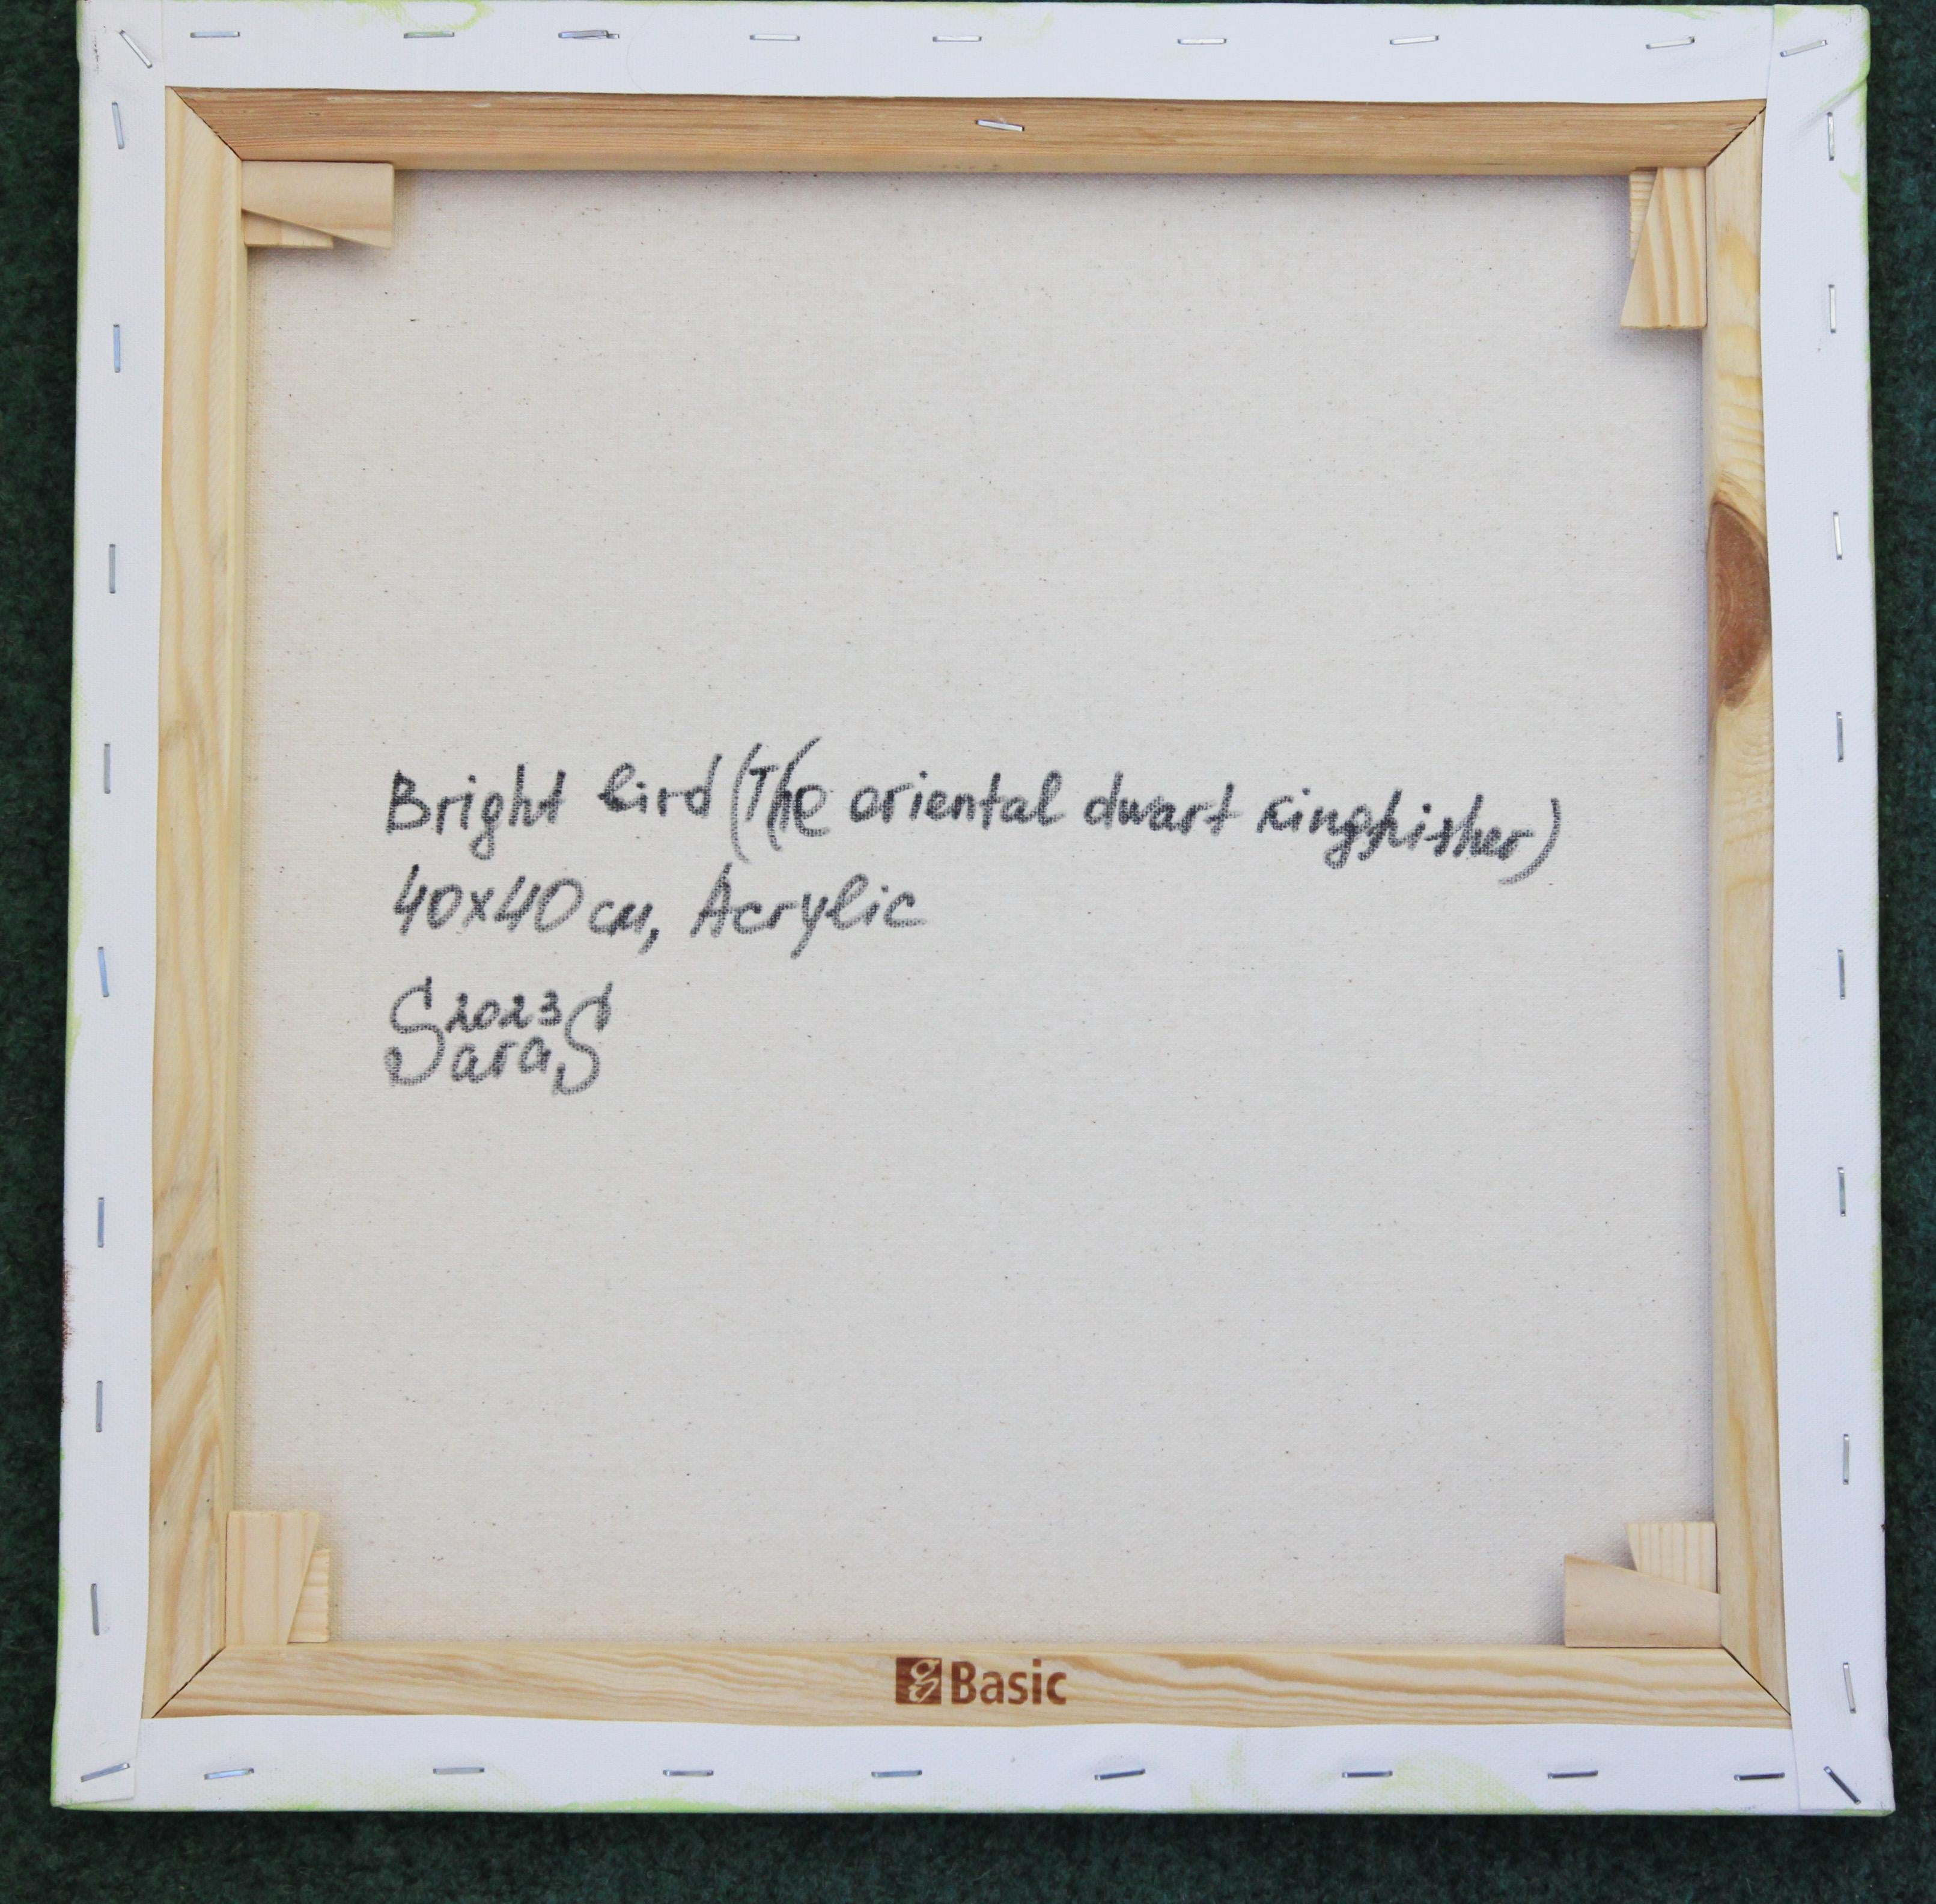 Bright bird (The oriental dwart kingfisher)
40x40 cm, Acrylic
2023
SaraS
Basic